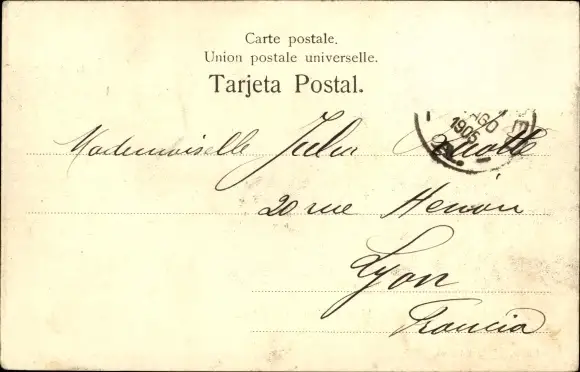 Carte postale.
Union postale universelle.
Tarjeta Postal.
AGO
1905
Mademoiselle Julia
20 rue Henon
Lyon
Francia